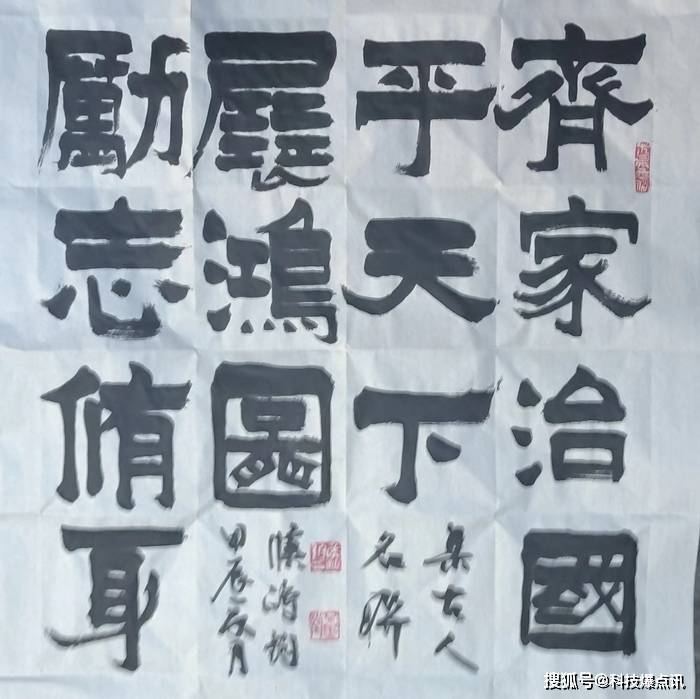 齊家治國
平天下
展鴻圖
勵志脩身
集古人
名聯
甲辰夏月
搜狐号@科技爆点讯